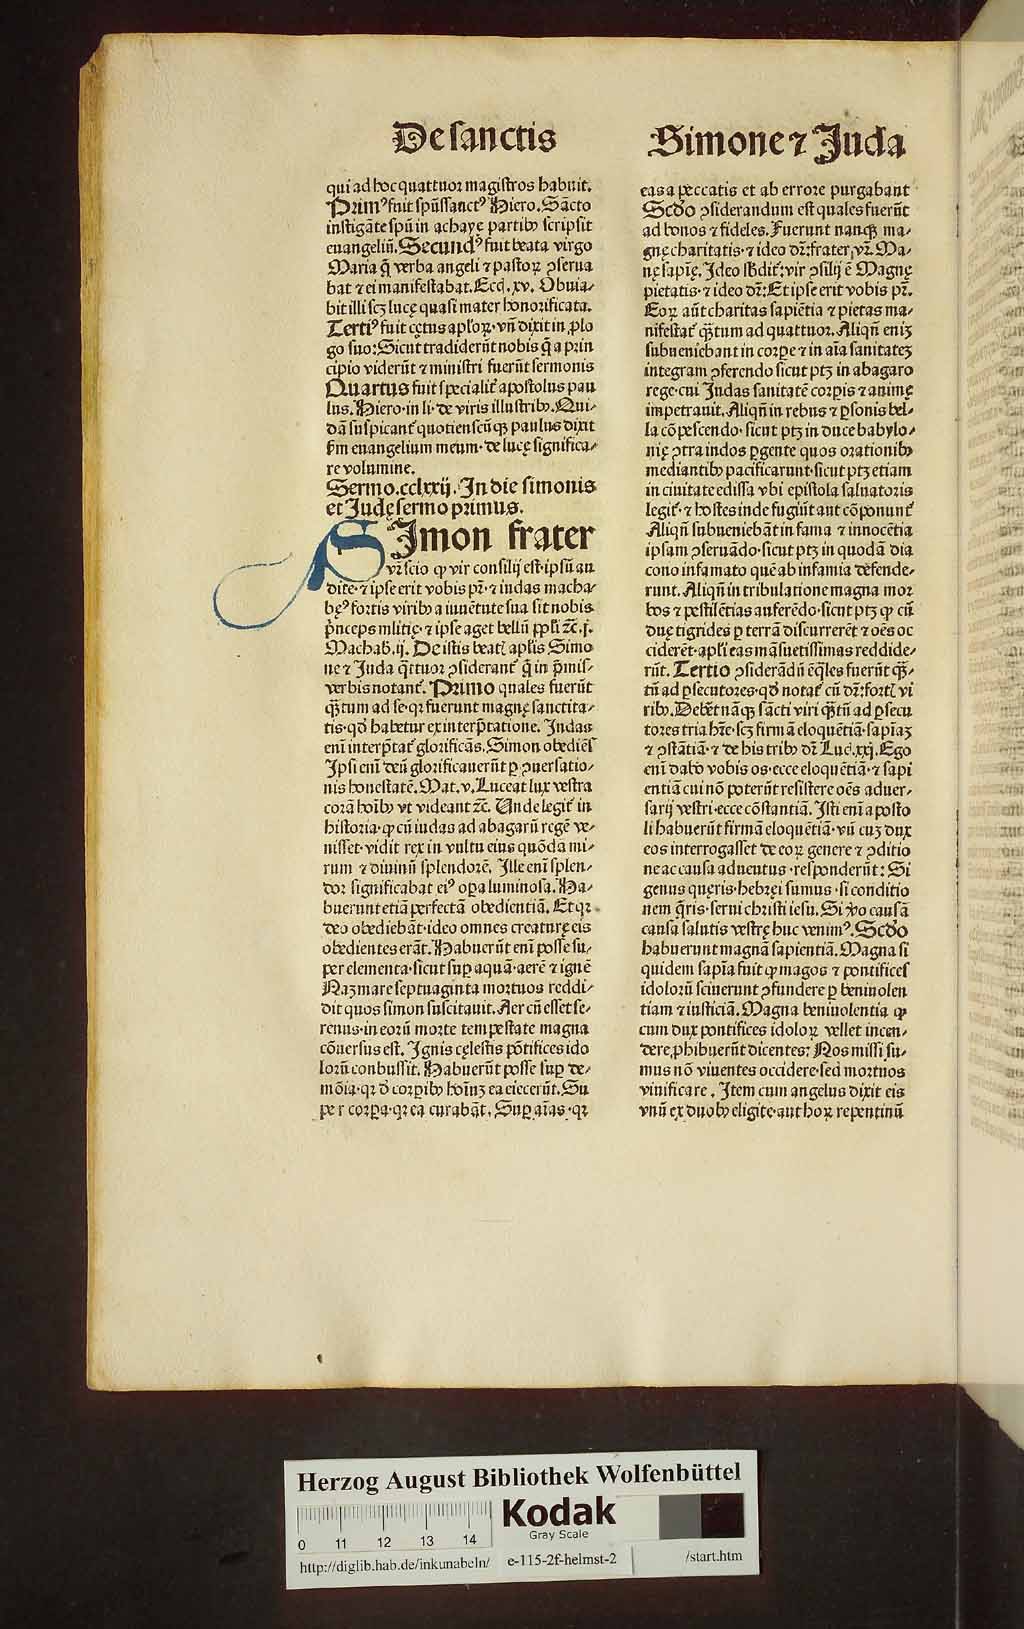 De sanctis
qui ad hoc quattuor magistros habuit.
Primꝰ fuit spũssanctꝰ Hiero. Sãcto
instigãte spũ in achayę partibꝫ scripsit
euangeliũ. Secundꝰ fuit beata virgo
Maria q̃ verba angeli ⁊ pastoꝝ ꝯserua
bat ⁊ ei manifestabat. Eccl̃. xv. Obuia-
bit illi scꝫ lucę quasi mater honorificata.
Tertiꝰ fuit cętus apl̃oꝝ. vñ dixit in ꝓlo
go suo: Sicut tradiderũt nobis q̃ a prin
cipio viderũt ⁊ ministri fuerũt sermonis
Quartus fuit specialit̃ apostolus pau
lus. Hiero. in li. de viris illustribꝫ. Qui-
dã suspicant̃ quotienscũqꝫ paulus dixit
ẜm euangelium meum. de lucę significa-
re volumine.
Sermo. cclxxij. In die simonis
et Judę sermo primus.
SImon frater
vr̃ scio ꝙ vir consilij est. ipsũ au
dite. ⁊ ipse erit vobis pr̃. ⁊ iudas macha-
bęꝰ fortis viribꝫ a iuuẽtute sua sit nobis
p̃nceps militię. ⁊ ipse aget bellũ ppl̃i ⁊c̃. j.
Machab. ij. De istis beatꝭ aplis Simo
ne ⁊ Juda q̃ttuor ꝯsiderant̃ q̃ in p̃mis-
verbis notant̃. Primo quales fuerũt
qꝫ̃tum ad se. qꝛ fuerunt magnę sanctita-
tis. qd̃ habetur ex interp̃tatione. Judas
eni interp̃tat̃ glorificãs. Simon obediẽs
Ipsi enĩ deũ glorificauerũt ꝑ ꝯuersatio-
nis honestatẽ. Mat. v. Luceat lux vestra
corã hoĩbꝫ vt videant ⁊c̃. Unde legit̃ in
historia. ꝙ cũ iudas ad abagarũ regẽ ve-
nisset. vidit rex in vultu eius quõdã mi-
rum ⁊ diuinũ splendorẽ. Ille enĩ splen-
dor significabat eiꝰ oꝑa luminosa. Ha-
buerunt etiã perfectã obedientiã. Et qꝛ
deo obediebãt. ideo omnes creaturę eis
obedientes erãt. Habuerũt enĩ posse su-
per elementa. sicut suꝑ aquã. aerẽ ⁊ ignẽ
Naꝫ mare septuaginta mortuos reddi-
dit quos simon suscitauit. Aer cũ esset se-
renus. in eorũ morte tempestate magna
cõuersus est. Ignis cęlestis põtifices ido
lorũ conbussit. Habuerũt posse suꝑ de-
mõia. qꝛ d̾ corꝑibꝫ hoĩnꝫ ea eiecerũt. Su
per corꝑa. qꝛ ea curabãt. Suꝑ aĩas. qꝛ
Simone ⁊ Juda
eas a peccatis et ab errore purgabant
Scd̃o ꝯsiderandum est quales fuerũt
ad bonos ⁊ fideles. Fuerunt nanqꝫ ma-
gnę charitatis. ⁊ ideo dr̃: frater vr̃. Ma-
nę sapię. Ideo sbdit̃: vir ꝯsilij ẽ Magnę
pietatis. ⁊ ideo dr̃: Et ipse erit vobis pr̃.
Eoꝝ aũt charitas sapiẽtia ⁊ pietas ma-
nifestat̃ qꝫ̃tum ad quattuor. Aliqñ eniꝫ
subueniebant in corꝑe ⁊ in aĩa sanitateꝫ
integram ꝯferendo sicut ptꝫ in abagaro
rege. cui Judas sanitatẽ corꝑis ⁊ animę
impetrauit. Aliqñ in rebus ⁊ ꝑsonis bel-
la cõpescendo. sicut ptꝫ in duce babylo-
nię ꝯtra indos ꝑgente quos orationibꝫ
mediantibꝫ pacificarunt. sicut ptꝫ etiam
in ciuitate edissa vbi epistola saluatoris
legit̃. ⁊ hostes inde fugiũt aut cõponunt̃
Aliqñ subueniebãt in fama ⁊ innocẽtia
ipsam ꝯseruãdo. sicut ptꝫ in quodã dia
cono infamato quẽ ab infamia defende-
runt. Aliqñ in tribulatione magna mor
bos ⁊ pestilẽtias auferẽdo. sicut ptꝫ ꝙ cũ
duę tigrides ꝑ terrã discurrerẽt ⁊ oẽs oc
ciderẽt. apl̃i eas mãsuetissimas reddide-
rũt. Tertio ꝯsiderãdũ ẽ q̃les fuerũt qꝫ̃-
tũ ad ꝑsecutores. qd̃ notat̃ cũ dr̃: fortꝭ vi
ribꝫ. Debẽt nãqꝫ sãcti viri qꝫ̃tũ ad ꝑsecu
tores tria hr̃e. scꝫ firmã eloquẽtiã. sapiaꝫ
⁊ ꝯstãtiã. ⁊ de his tribꝫ dr̃ Luc̃. xxj. Ego
enĩ dabo vobis os. ecce eloquẽtiã. ⁊ sapi
entiã cui nõ poterũt resistere oẽs aduer-
sarij vestri. ecce cõstantiã. Isti enĩ aposto
li habuerũt firmã eloquẽtiã. vñ cuꝫ dux
eos interrogasset de eoꝝ genere ⁊ ꝯditio
ne ac causa aduentus. responderũt: Si
genus quęris. hebręi sumus. si conditio
nem q̃ris. serui christi iesu. Si ꝟo causã
causa salutis vestrę huc venimꝰ. Scd̃o
habuerunt magnã sapientiã. Magna si
quidem sapĩa fuit ꝙ magos ⁊ pontifices
idolorũ sciuerunt ꝯfundere ꝑ beniuolen
tiam ⁊ iusticiã. Magna beniuolentia ꝙ
cum dux pontifices idoloꝝ vellet incen-
dere, ꝓhibuerũt dicentes: Nos missi su-
mus nõ viuentes occidere. sed mortuos
viuificare. Item cum angelus dixit eis
vnũ ex duobꝫ eligite. aut hoꝝ repentinũ
Herzog August Bibliothek Wolfenbüttel
Kodak
Gray Scale
0 11 12 13 14
http://diglib.hab.de/inkunabeln/ e-115-2f-helmst-2 /start.htm